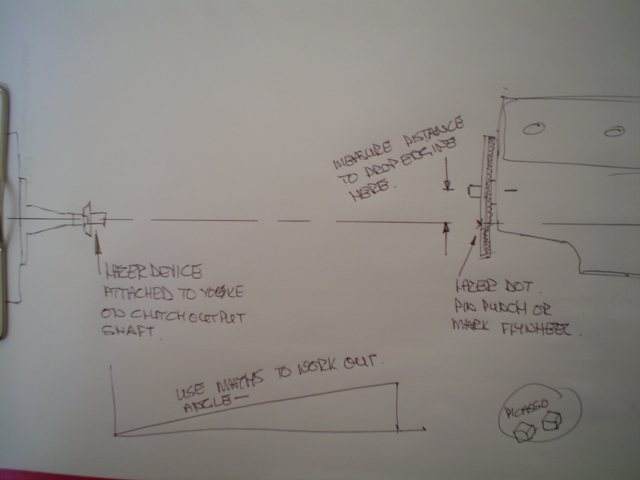 MEASURE DISTANCE
TO DROP ENGINE
HERE.
LAZER DEVICE
ATTACHED TO YOKE
ON CLUTCH OUTPUT
SHAFT.
LAZER DOT.
PIN PUNCH OR
MARK FLYWHEEL.
USE MATHS TO WORK OUT.
ANGLE—
PICASSO